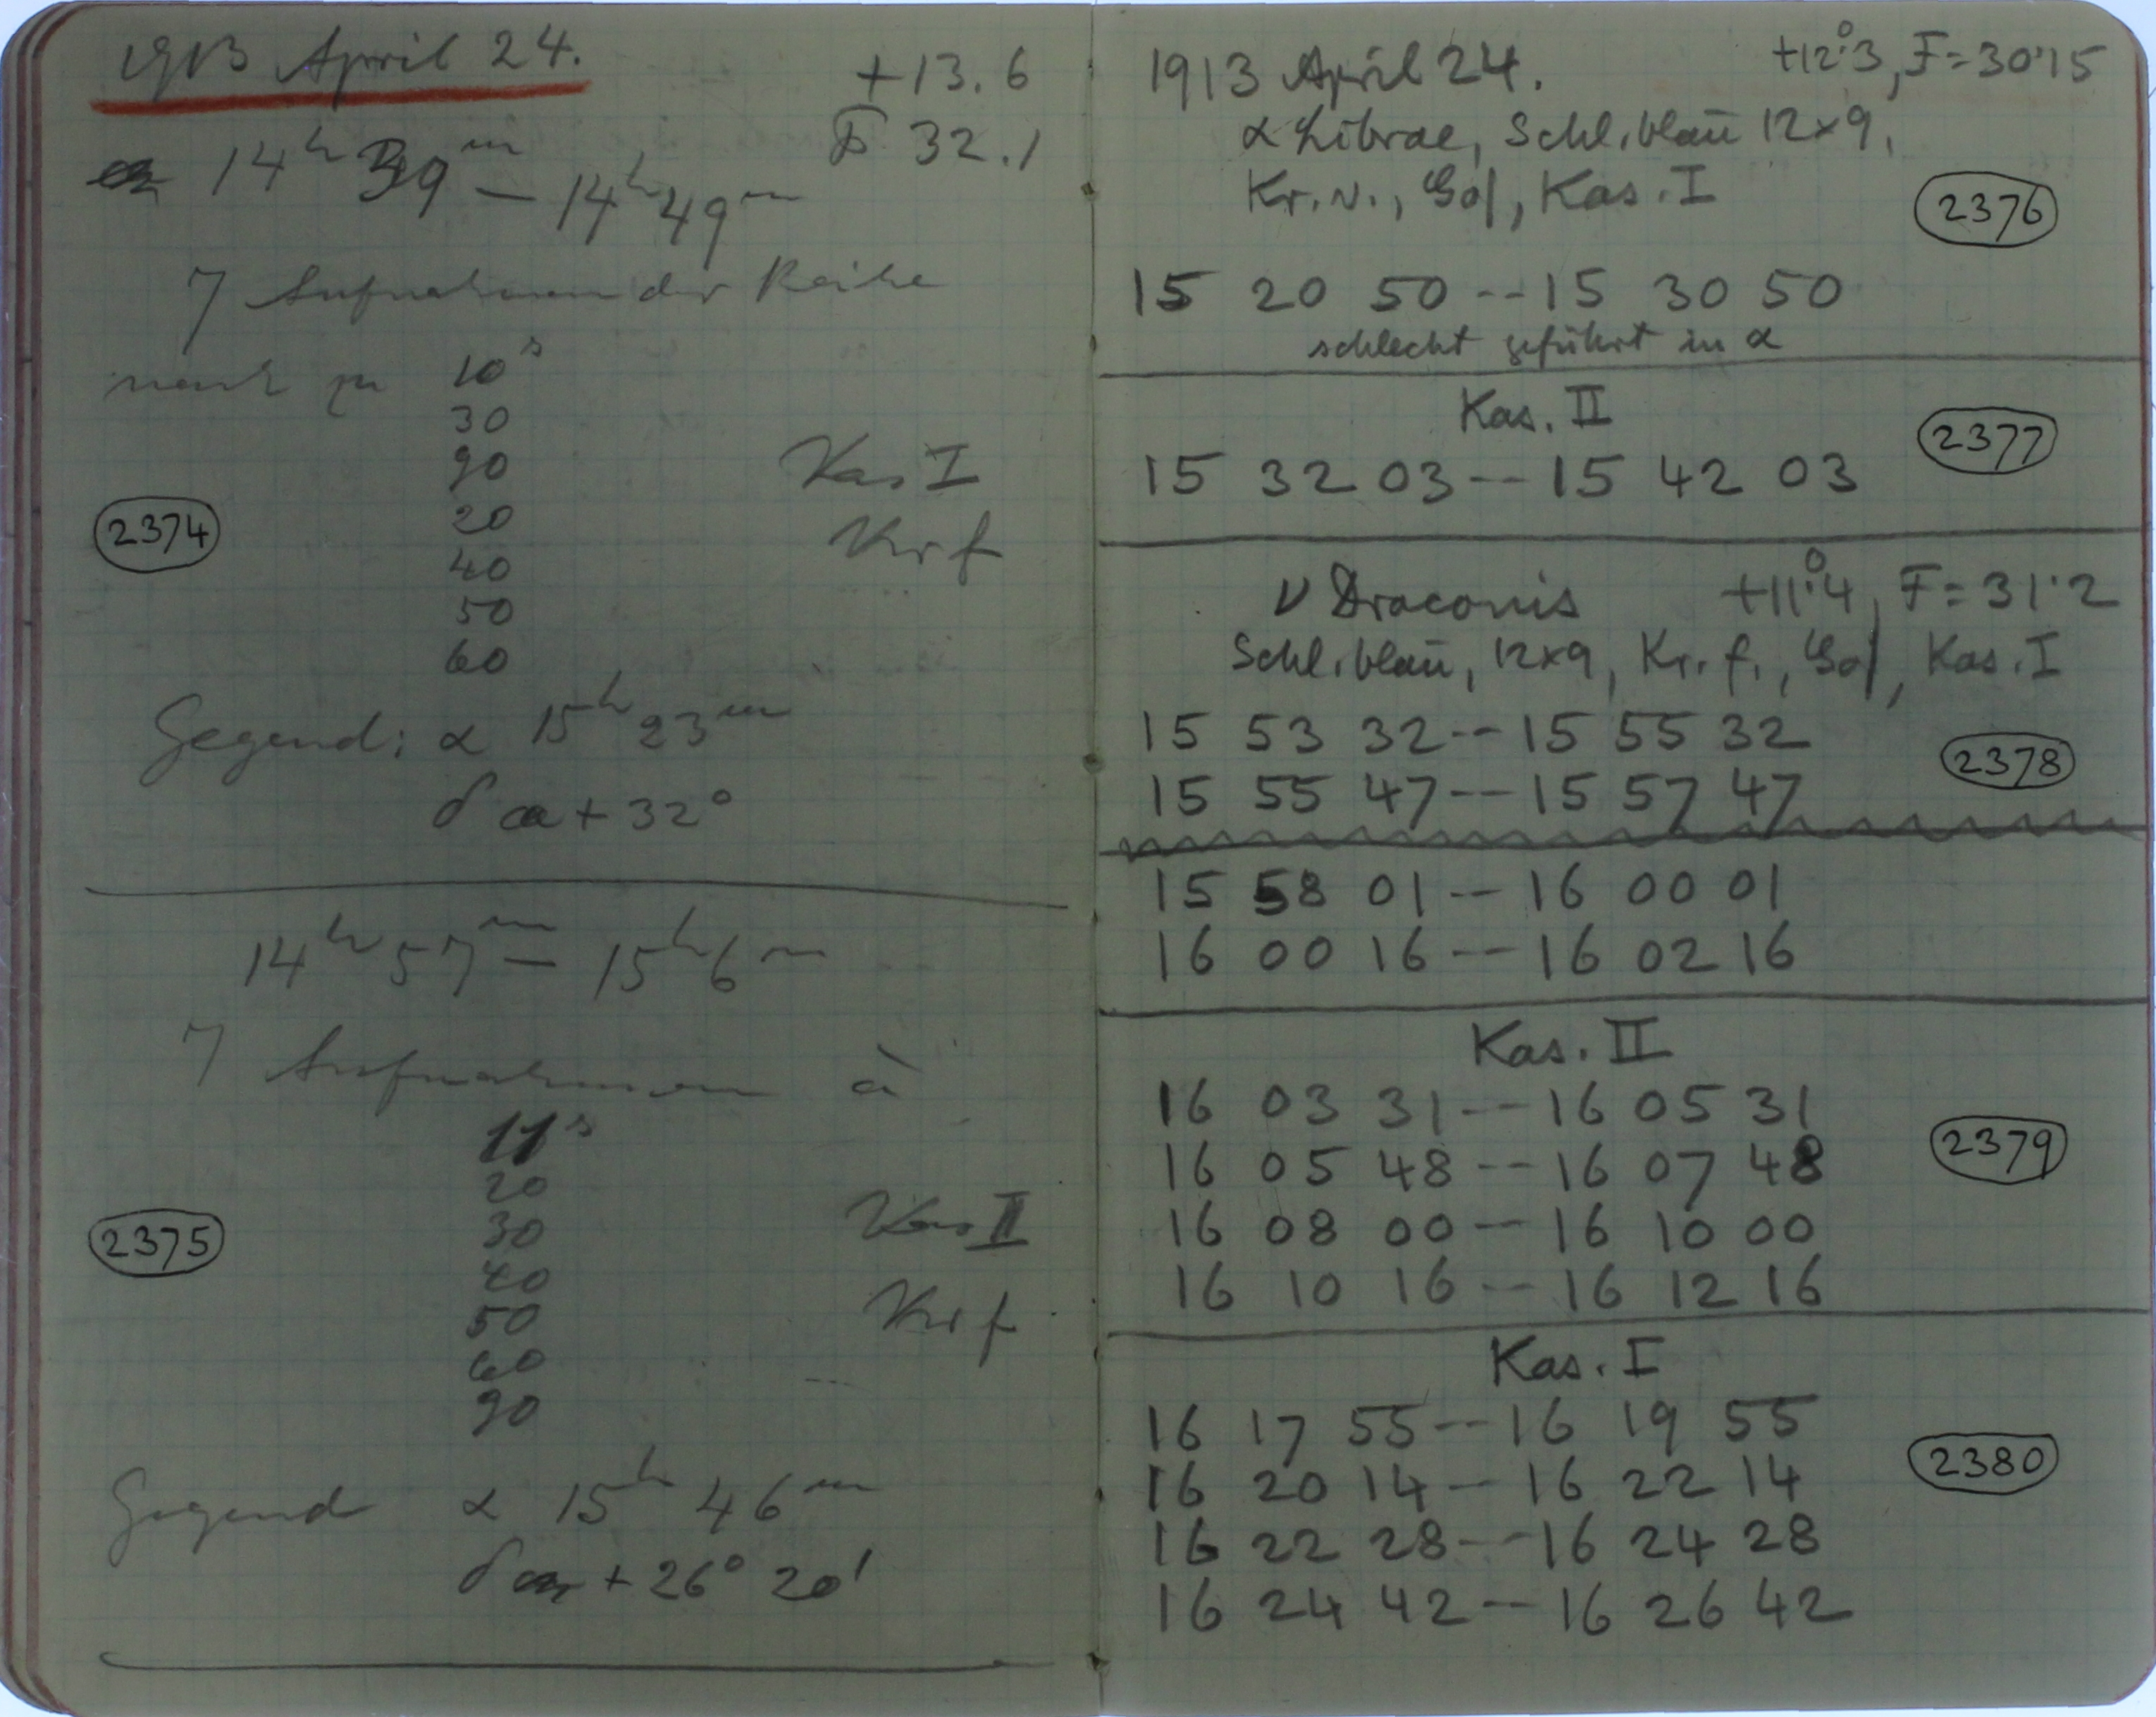 1913 April 24.
+13.6
F 32.1
14ʰ 39ᵐ — 14ʰ 49ᵐ
7 Aufnahmen der Reihe
nach zu 10ˢ
30
90
20
40
50
60
Kas I
Kr f
2374
Gegend: α 15ʰ 23ᵐ
δ + 32°
14ʰ 57ᵐ — 15ʰ 6ᵐ
7 Aufnahmen à
11ˢ
20
30
40
50
60
90
Kas II
Kr f
2375
Gegend α 15ʰ 46ᵐ
δ + 26° 20'
1913 April 24. +12°.3, F=30.15
α Librae, Schl. blau 12×9,
Kr. v., Kas. I
2376
15 20 50 -- 15 30 50
schlecht geführt in α
Kas. II
2377
15 32 03 -- 15 42 03
ν Draconis +11°.4, F=31.2
Schl. blau, 12×9, Kr. f., Kas. I
15 53 32 -- 15 55 32
2378
15 55 47 -- 15 57 47
15 58 01 -- 16 00 01
16 00 16 -- 16 02 16
Kas. II
16 03 31 -- 16 05 31
2379
16 05 48 -- 16 07 48
16 08 00 -- 16 10 00
16 10 16 -- 16 12 16
Kas. I
16 17 55 -- 16 19 55
2380
16 20 14 -- 16 22 14
16 22 28 -- 16 24 28
16 24 42 -- 16 26 42